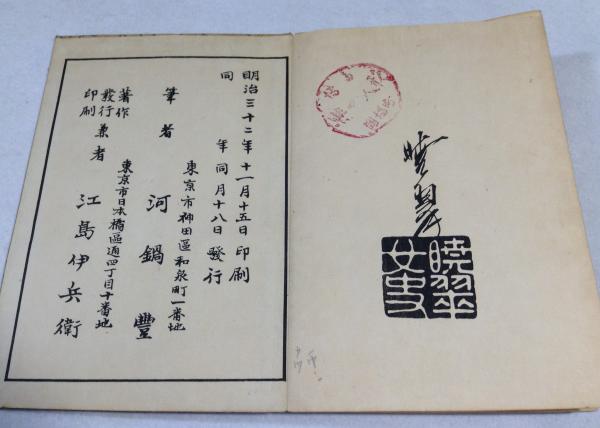 暁翠
曉翠
女史
明治三十二年十一月十五日印刷
同年同月十八日發行
東京市神田區和泉町一番地
筆者 河鍋豐
東京市日本橋區通四丁目十番地
著作
發行
印刷
兼者 江島伊兵衛